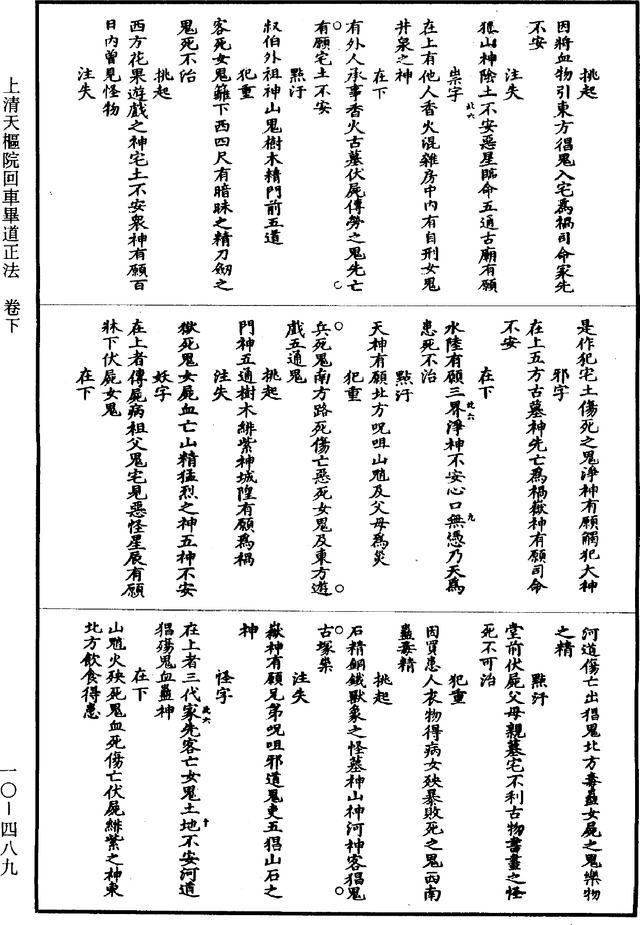 挑起
因將血物引東方猖鬼入宅為禍司命家先
不安
注失
狼山神陰土不安惡星臨命五通古廟有願
北六
祟字
在上有他人香火混雜房中內有自刑女鬼
井泉之神
在下
有外人承事香火古墓伏屍傳勞之鬼先亡
有願宅土不安
點汙
叔伯外祖神山鬼樹木精門前五道
犯重
客死女鬼籬下西四尺有暗昧之精刀劒之
鬼死不治
挑起
西方花果遊戲之神宅土不安衆神有願百
日內曾見怪物
注失
是作犯宅土傷死之鬼淨神有願觸犯大神
邪字
在上五方古墓神先亡為禍嶽神有願司命
不安
在下
水陸有願三界淨神不安心口無憑乃天為
北六
九
患死不治
點汙
天神有願北方呪咀山魈及父母為災
犯重
兵死鬼南方路死傷亡惡死女鬼及東方遊
戲五通鬼
挑起
門神五通樹木緋紫神城隍有願為禍
注失
嶽死鬼女屍血亡山精猛烈之神五神不安
妖字
在上者傳屍病祖父鬼宅見惡怪星辰有願
牀下伏屍女鬼
在下
河道傷亡出猖鬼北方毒蠱女屍之鬼樂物
之精
點汙
堂前伏屍父母親墓宅不利古物書畫之怪
死不可治
犯重
因買患人衣物得病女殃暴敗死之鬼西南
蠱毒精
挑起
石精銅鐵獸象之怪墓神山神河神客猖鬼
古塚藥
注失
嶽神有願兄弟呪咀邪道鬼吏五猖山石之
神
怪字
在上者三代家先客亡女鬼土地不安河道
北六
十
猖瘍鬼血蠱神
在下
山魈火殃死鬼血死傷亡伏屍緋紫之神東
北方飲食得患
上清天樞院回車畢道正法　卷下
一〇－四八九